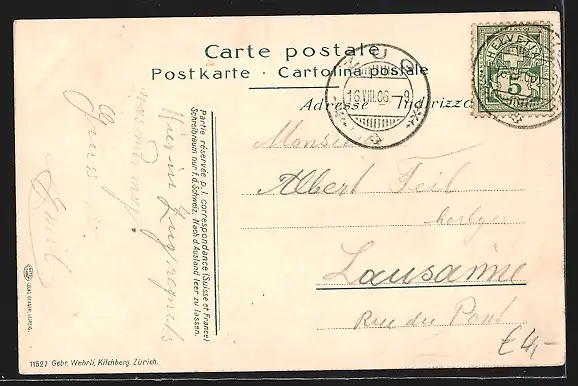 Carte postale
Postkarte - Cartolina postale
Adresse Indirizzo
ZUG
16.VIII.06.-9
HELVETIA
5
Partie réservée p. l. correspondance (Suisse et France)
Schreibraum nur f. d. Schweiz. Nach d. Ausland leer zu lassen.
Hier in Zug regnets
Gruss
Emil
Monsieur
Albert Feil
Lausanne
Rue du Pont
£4,-
11527 Gebr. Wehrli, Kilchberg, Zürich.